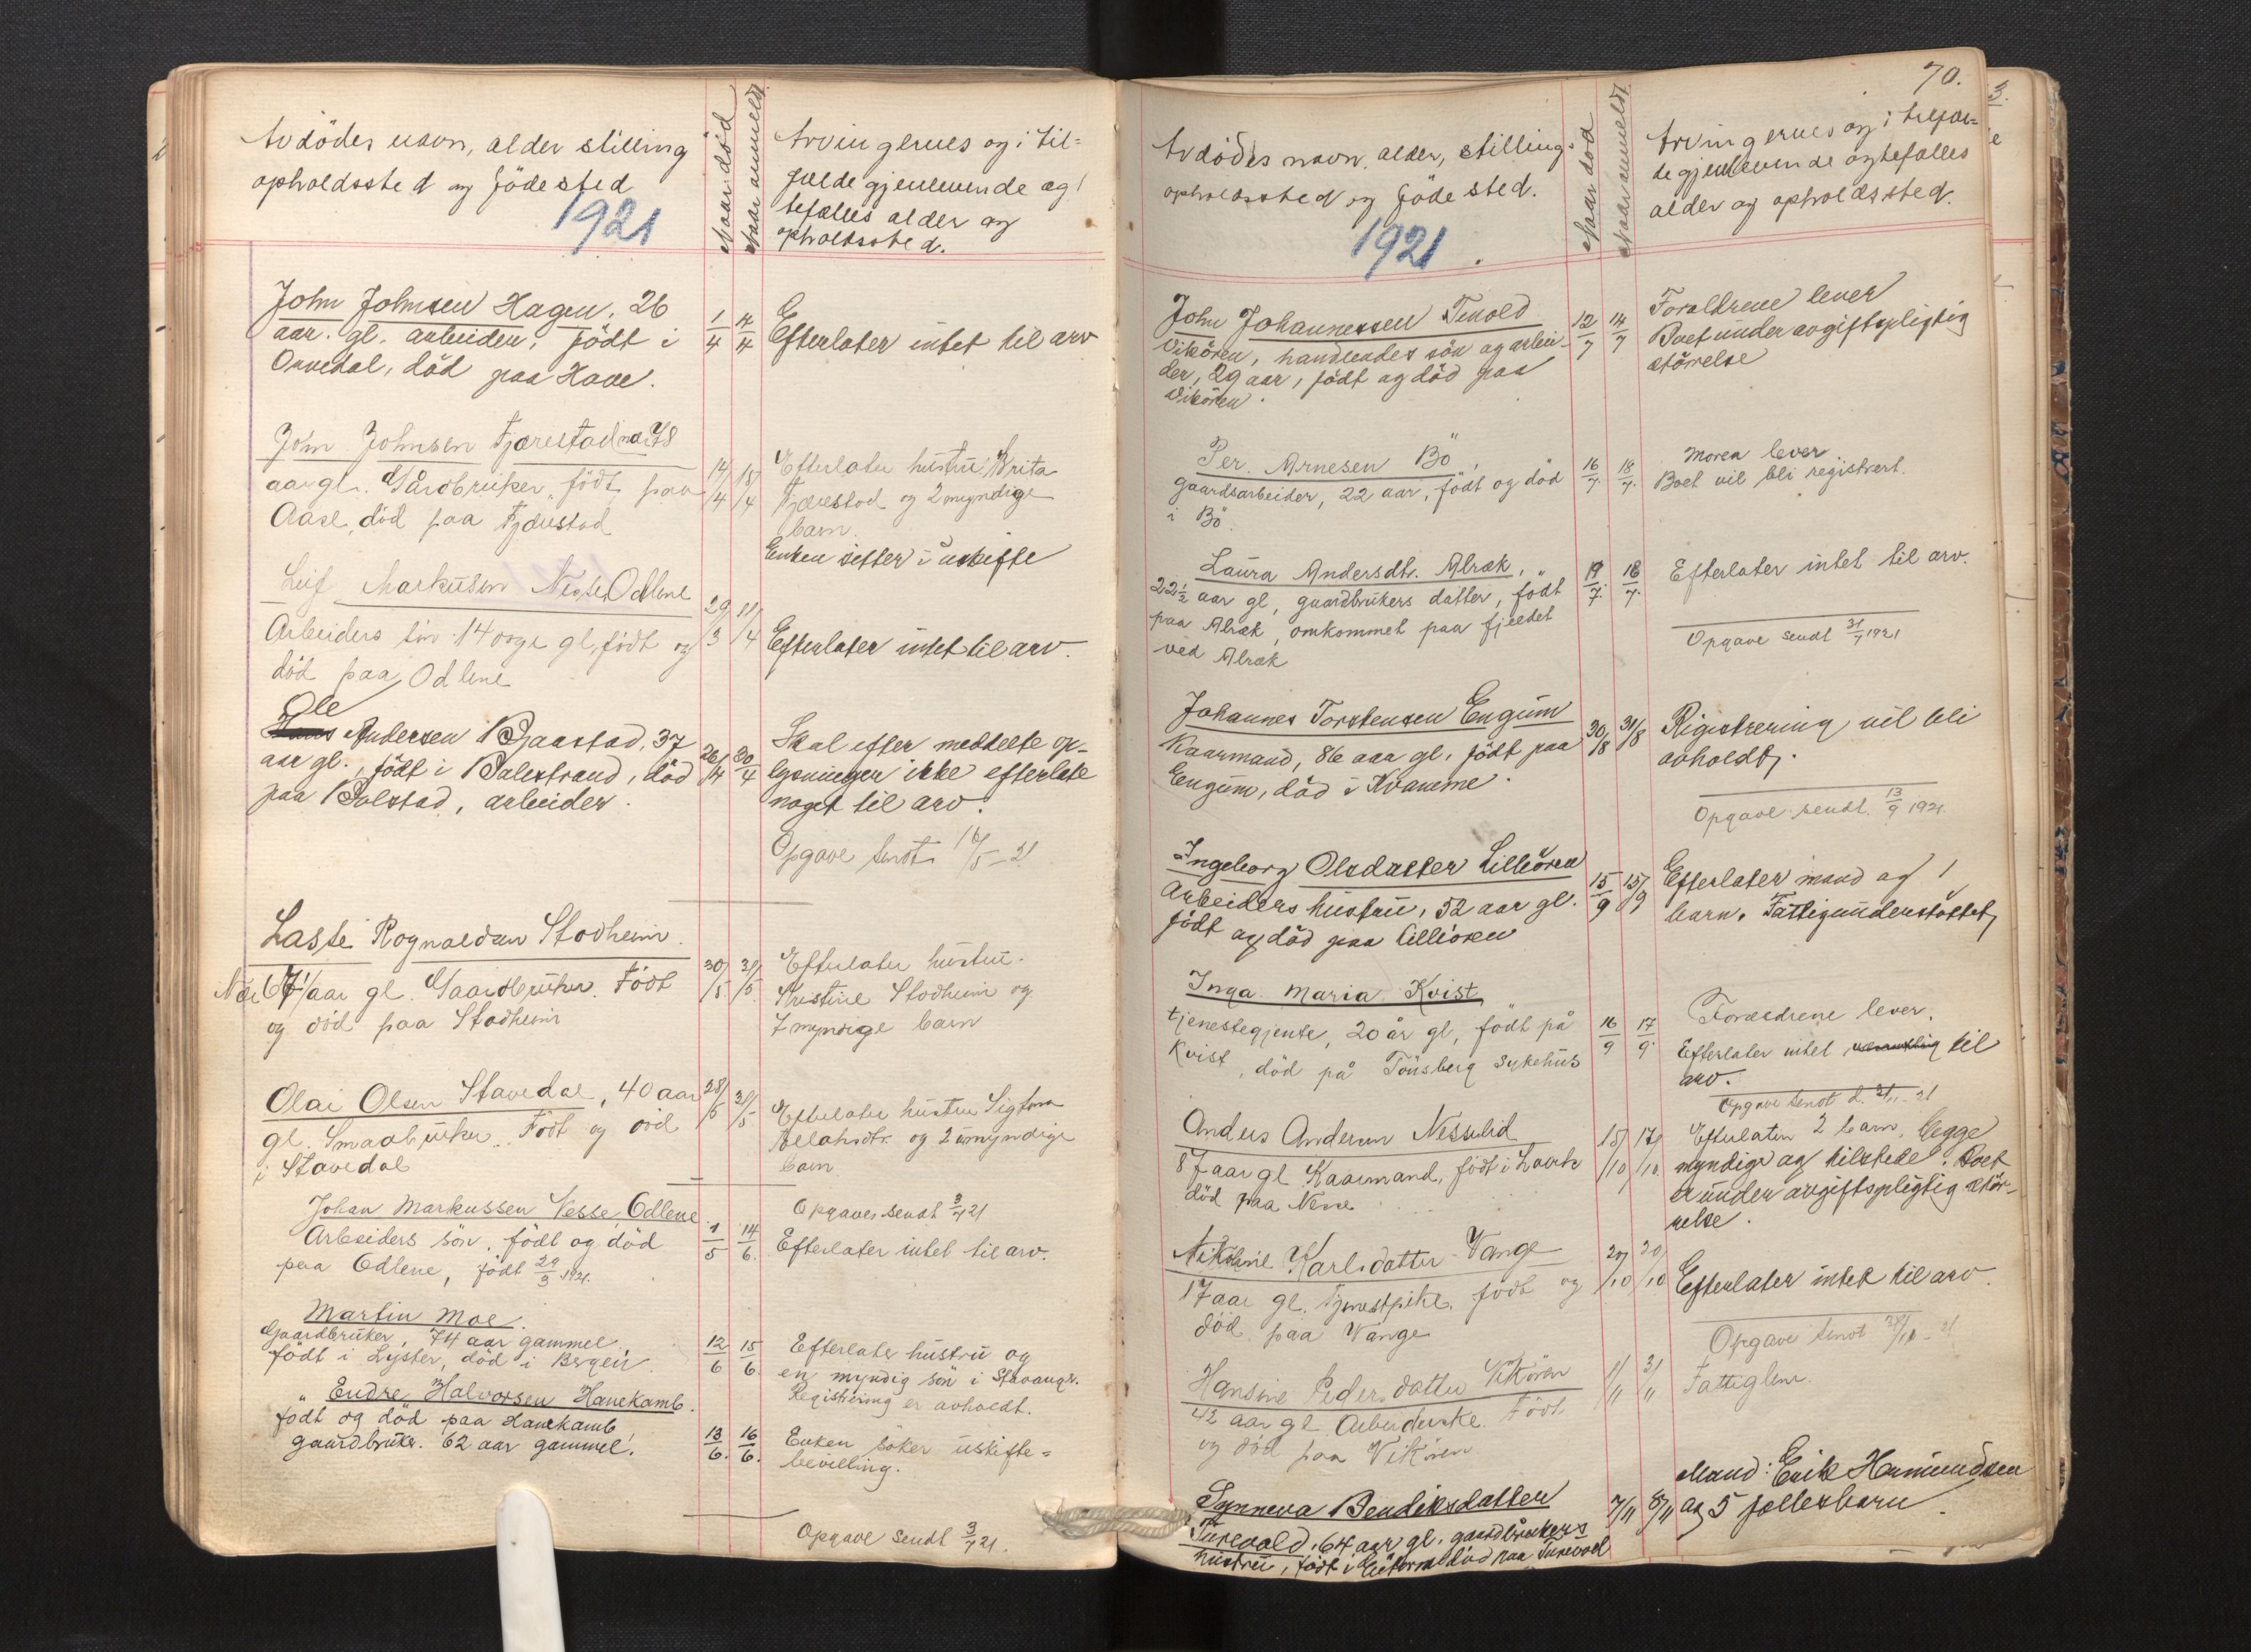 Avdödes navn, alder stilling
opholdssted og födested
1921
Naar död
Naar anmeldt
Arvingernes og i til-
fælde gjenlevende æg-
tefælles alder og
opholdssted.
John Johnsen Hagen, 26
aar. gl. arbeider, födt i
död paa Hove.
1/4 4/4
Efterlater intet til arv
John Johnsen Fjærestad nær 78
aar gl. Gårdbruker, födt paa
Aase, död paa Fjærestad
14/4 18/4
Efterlater hustru Brita
Fjærestad og 2 myndige
barn.
Enken sitter i uskifte
Leif Markusen Nesse, Odlene
Arbeiders sön 14 gl, födt og
död paa Odlene
29/3 11/4
Efterlater intet til arv.
Ole
Hans Andersen Bjaastad, 37
aar gl., födt i Balestrand, död
paa Bolstad, arbeider.
26/4 30/4
Skal efter meddelte op-
lysninger ikke efterlate
noget til arv.
Opgave sendt 16/5 - 21
Lasse Rognaldsen Stadheim
Nær 67 aar gl. Gaardbruker. Födt
og död paa Stadheim
30/5 31/5
Efterlater hustru.
Kristine Stadheim og
7 myndige barn
Olai Olsen Stavedal, 40 aar
gl. Smaabruker. Födt og död
i Stavedal
28/5 31/5
Efterlater hustru
og 2 umyndige
barn
Opgaver sendt 3/7 21
Johan Markussen Nesse, Odlene
Arbeiders sön, födt og död
paa Odlene, födt 29/3 1921.
1/5 14/6.
Efterlater intet til arv.
Martin Moe.
Gaardbruker, 74 aar gammel,
födt i Lyster, död i Bergen
12/6 15/6.
Efterlater hustru og
en myndig sön i Stavanger.
Registrering er avholdt.
" Endre Halvorsen Hanekamb.
födt og död paa Hanekamb
gaardbruker. 62 aar gammel.
13/6. 16/6.
Enken söker uskifte-
bevilling.
Opgave sendt 3/7 21.
70.
Avdödes navn, alder, stilling
opholdssted og födested.
1921.
Naar död
Naar anmeldt
Arvingernes og i tilfæl-
de gjenlevende ægtefælles
alder og opholdssted.
John Johannessen Tenold
Vikören, handlendes sön og arbei-
der, 29 aar, födt og död paa
Vikören.
12/7 14/7
Forældrene lever
Boet under avgiftspligtig
störrelse
Per. Arnesen Bö,
gaardsarbeider, 22 aar, födt og död
i Bö.
16/7. 18/7.
Moren lever
Boet vil bli registrert.
Laura Andersdtr. Abræk, "
22½ aar gl, gaardbrukers datter, födt
paa Abræk, omkommet paa fjeldet
ved Abræk
19/7. 18/7.
Efterlater intet til arv.
Opgave sendt 31/7 1921
Johannes Torstensen Engum
Kaarmand, 86 aar gl, födt paa
Engum, död i Kvamme.
30/8 31/8
Registrering vil bli
avholdt.
Opgave sendt. 13/9 1921.
Ingeborg Olsdatter Lilleören
Arbeiders hustru, 52 aar gl.
födt og död paa Lilleören
15/9 15/9
Efterlater mand og 1
barn. Fattigunderstöttet,
Inga. Maria. Kvist,
tjenestegjente, 20 år gl, födt på
Kvist, död på Tönsberg Sykehus
16/9 17/9.
Forældrene lever.
Efterlater intet til
arv.
Opgave sendt d. - 21
Anders Andersen Nesselid
87 aar gl Kaarmand, födt i
död paa Nesse
15/10 17/10.
Efterlater 2 barn, begge
myndige og tilstede. Boet
er under avgiftspligtig stör-
relse.
Nikoline Karlsdatter Vange
17 aar gl. tjenestpike, födt og
död paa Vange
20/10
Efterlater intet til arv.
Opgave sendt - 21
Hansine Pedersdatter Vikören
42 aar gl Arbeiderske. Födt
og död paa Vikören
1/11 3/11
Fattiglem.
Synneva Bendiksdatter
Turvold, 64 aar gl. gaardbrukers
hustru, födt i död paa Turvold
7/11 8/11
Mand: Erik Hermundsen
og 5 fællesbarn